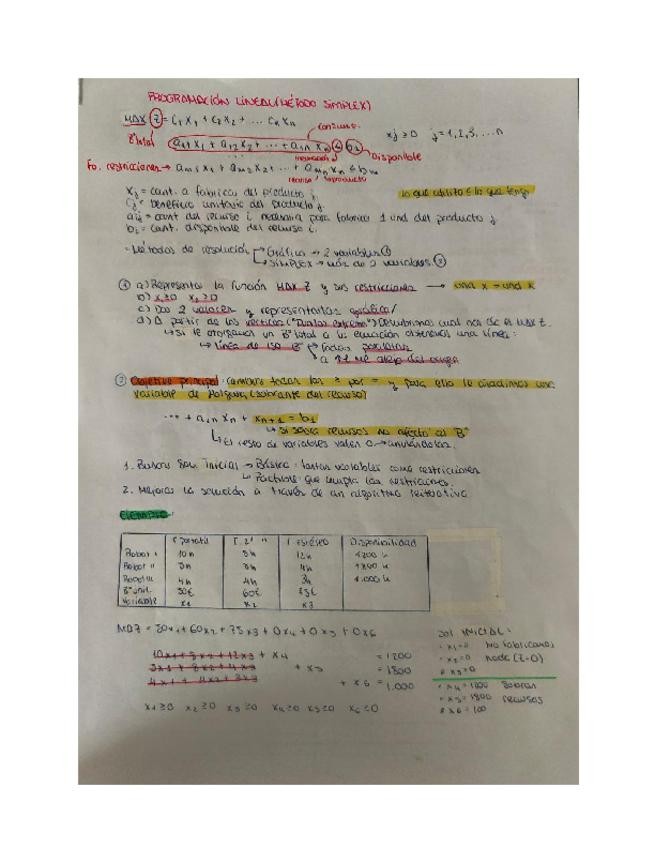 PROGRAMACIÓN LINEAL (MÉTODO SIMPLEX)
MAX Z = C1 X1 + C2 X2 + ... Cn Xn
Bº total a11 X1 + a12 X2 + ... + a1n Xn ≤ b1 xj ≥ 0 j = 1,2,3,...n
Disponible
Fo. restricciones → am1 X1 + am2 X2 + ... + amn Xn ≤ bm
recurso producto
Xj = cant. a fabricar del producto j. lo que utilizo ≤ lo que tengo
Cj = beneficio unitario del producto j.
aij = cant del recurso i necesaria para fabricar 1 und del producto j
bi = cant. disponible del recurso i.
Métodos de resolución → Gráfico → 2 variables ①
→ SIMPLEX → más de 2 variables ②
① a) Representar la función MAX Z y sus restricciones →
b) x1≥0 x2≥0
c) Dar 2 valores y representarlas gráfica/
d) A partir de los vértices ("Puntos extremos") Descubrimos cual nos da el MAX Z.
↳ Si le otorgamos un Bº total a la ecuación obtenemos una línea:
↳ Línea de ISO Bº → Todas paralelas
② Objetivo principal: cambiar todas las ≥ por = y para ello le añadimos una
variable de Holgura (sobrante del recurso)
... + a1n Xn + Xn+1 = b1
↳ Si sobra recursos no afecta al "B"
↳ El resto de variables valen 0 → anulándolas.
1. Buscar Sol. Inicial → Básica: tantas variables como restricciones
↳ Factible que cumpla las restricciones.
2. Mejorar la solución a través de un algoritmo iterativo
EJEMPLO:
T. portátil T. 2ª " T. estéreo Disponibilidad
Robot I 10h 8h 12h 1200 h
Robot II 3h 8h 4h 1800 h
Robot III 4h 4h 3h 1.000 h
Bº unit. 50€ 60€ 75€
Variable x1 x2 x3
MAX Z = 50x1 + 60x2 + 75x3 + 0x4 + 0x5 + 0x6
10x1 + 8x2 + 12x3 + x4 = 1200
3x1 + 8x2 + 4x3 + x5 = 1800
4x1 + 4x2 + 3x3 + x6 = 1.000
x1≥0 x2≥0 x3≥0 x4≥0 x5≥0 x6≥0
Sol INICIAL:
x1=0 No fabricamos
x2=0 nada (Z=0)
x3=0
x4=1200 Sobran
x5=1800 recursos
x6=100